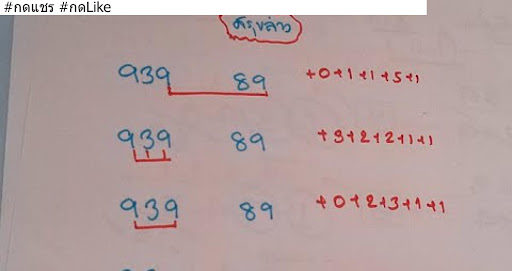 #กดแชร #กดLike
สรุปลาว
939 89 +0+1+1+5+1
939 89 +3+2+2+1+1
939 89 +0+2+3+1+1